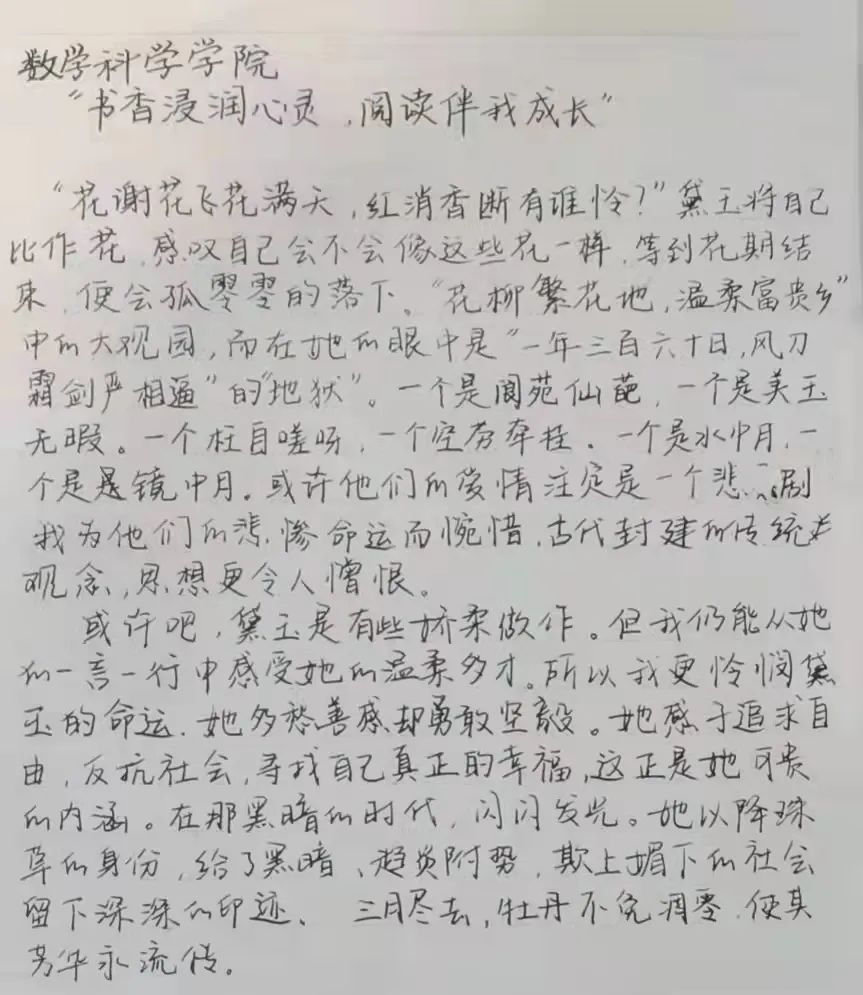 数学科学学院
“书香浸润心灵,阅读伴我成长”
“花谢花飞花满天,红消香断有谁怜?”黛玉将自己
比作花,感叹自己会不会像这些花一样,等到花期结
束,便会孤零零的落下。“花柳繁花地,温柔富贵乡”
中的大观园,而在她的眼中是“一年三百六十日,风刀
霜剑严相逼”的“地狱”。一个是阆苑仙葩,一个是美玉
无暇。一个枉自嗟呀,一个空劳牵挂。一个是水中月,一
个是是镜中月。或许他们的爱情注定是一个悲剧
我为他们的悲惨命运而惋惜,古代封建的传统
观念,思想更令人憎恨。
或许吧,黛玉是有些娇柔做作。但我们能从她
的一言一行中感受她的温柔多才。所以我更怜悯黛
玉的命运.她多愁善感却勇敢坚毅。她感于追求自
由,反抗社会,寻找自己真正的幸福,这正是她可贵
的内涵。在那黑暗的时代,闪闪发光。她以降珠
草的身份,给了黑暗、趋炎附势,欺上媚下的社会
留下深深的印迹、三月尽去,牡丹不免凋零,使其
芳华永流传。